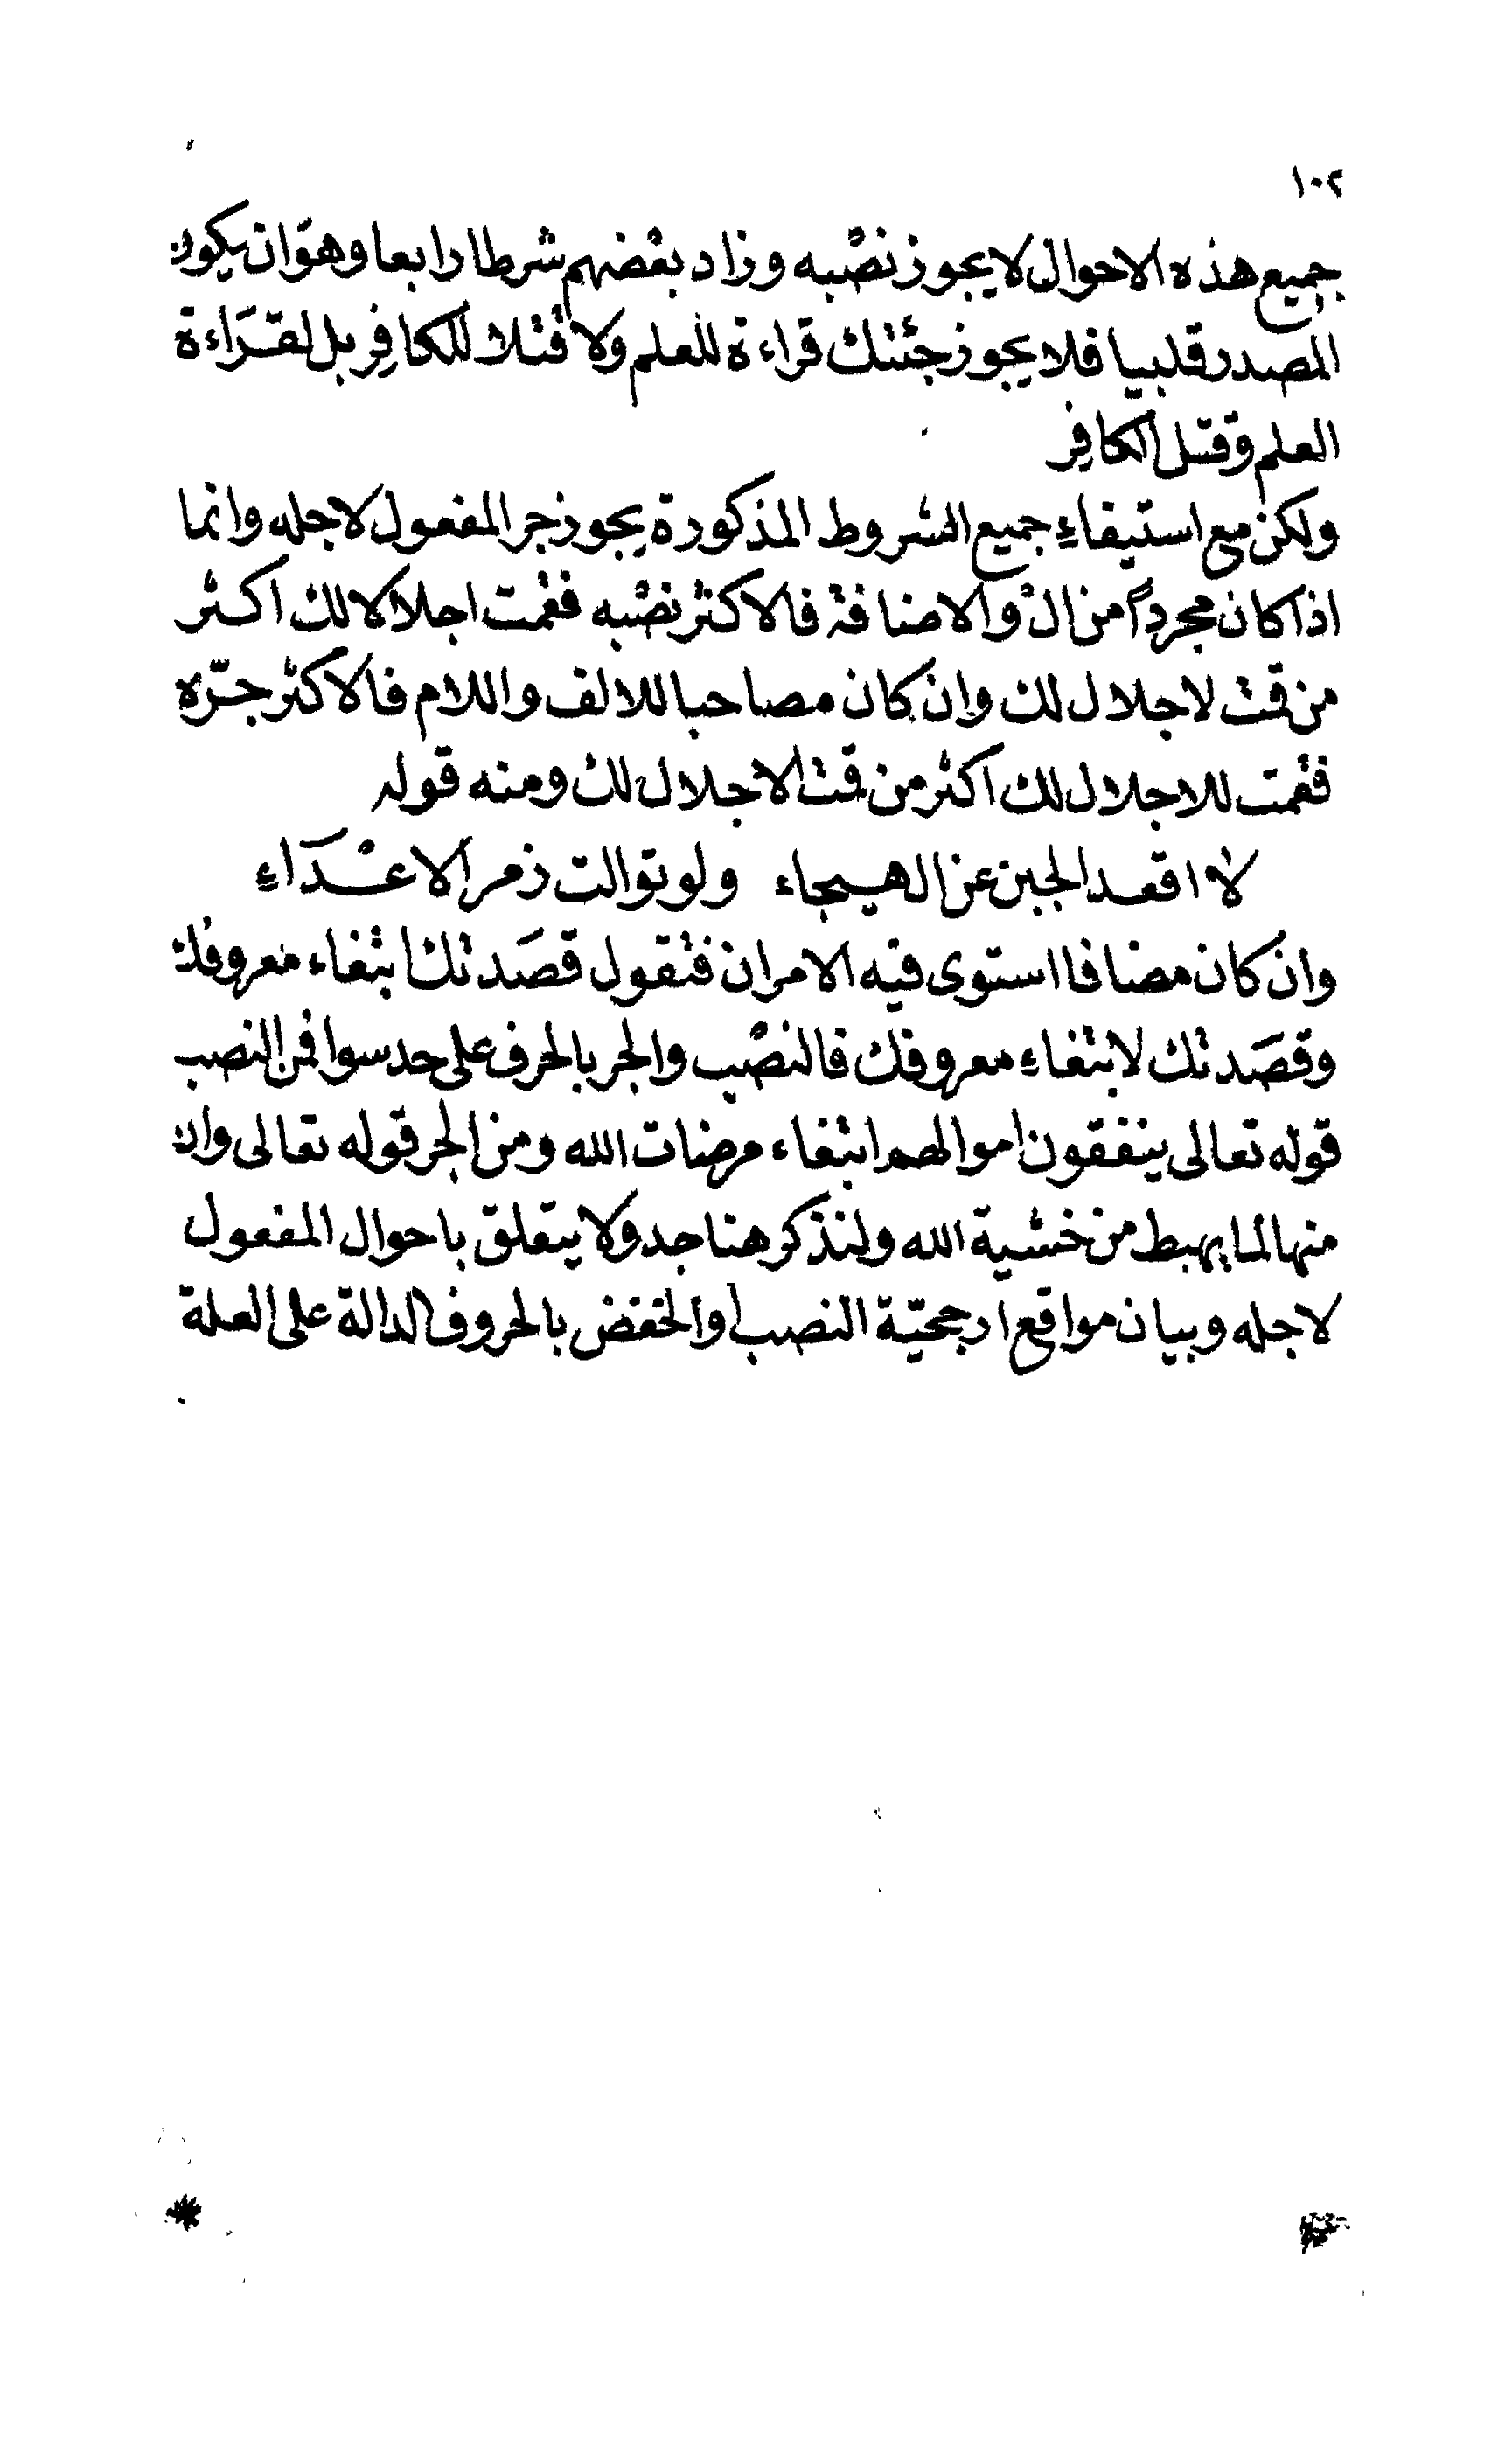 ١٠٢
جميع هذه الاحوال لا يجوز نصْبه وزاد بعْضهم شرطا رابعا وهوَ ان يكون
المصدر قلبيا فلا يجوز جئتك قراءة للعلم ولا قتلا للكافِر بل لقرَاءة
العلم وقتل الكافِر
ولكن مع استيفاءِ جميع الشروط المذكورة يجوز جر المفعول لاجله وانما
اذا كان مجرداً من الْ والاضافة فالاكثر نصْبه فقمْت اجلالا لك اكثر
من قمت لاجلال لك وان كان مصاحبا للالف واللام فالاكثر جرّه
فقمْت للاجلال لك اكثر من قمت الاجلال لك ومنه قوله
لا اقعد الجبن عن الهيجاء ولو توالت زمر الاعْدَاءِ
وان كان مضافا استوى فيه الامران فتقول قصَدتك ابتغاء معروفك
وقصَدتك لابتغاءِ معروفك فالنصْب والجر بالحرف على حد سوا فمن النصب
قوله تعالى ينفقون اموالهم ابتغاء مرضات الله ومن الجر قوله تعالى وان
منها لما يهبط من خشية الله ولنذكر هنا جدولا يتعلق باحوال المفعول
لاجله وبيان مواقع ارجحيّة النصب او الخفض بالحروف الدالة على العلة